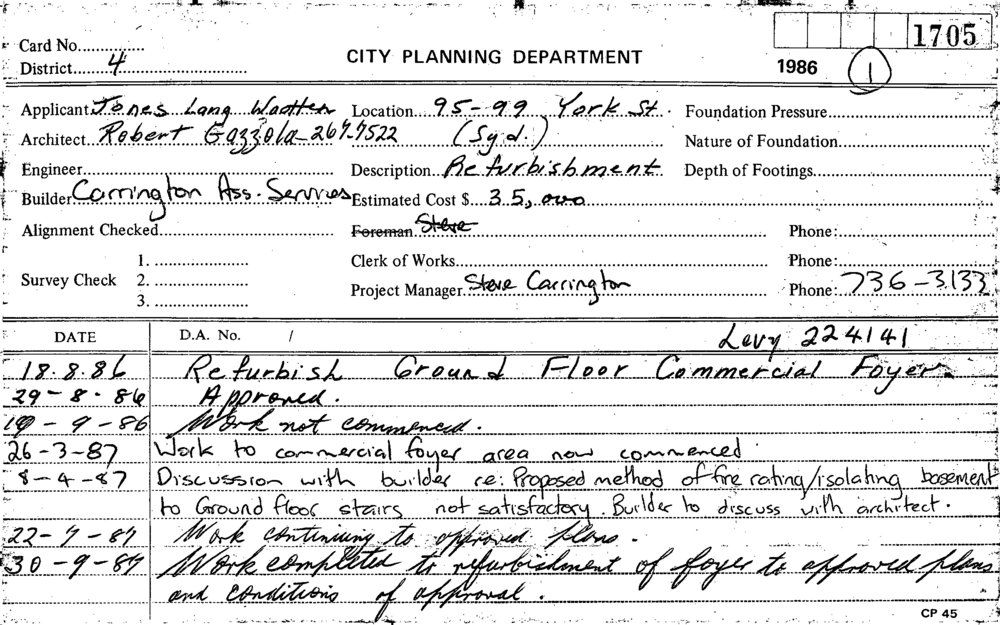 1705
Card No.
CITY PLANNING DEPARTMENT
District 4
1986 1
Applicant Jones Lang Wootten Location 95-99 York St. Foundation Pressure
Architect Robert Gazzola 267-7522 (Syd.) Nature of Foundation
Engineer Description Refurbishment Depth of Footings
Builder Carrington Ass. Services Estimated Cost $ 35,000
Alignment Checked Foreman Steve Phone:
1. Clerk of Works Phone:
Survey Check 2. Project Manager Steve Carrington Phone: 736-3133
3.
DATE D.A. No. / Levy 224141
18.8.86 Refurbish Ground Floor Commercial Foyer.
29-8-86 Approved.
19-9-86 Work not commenced.
26-3-87 Work to commercial foyer area now commenced
8-4-87 Discussion with builder re: Proposed method of fire rating/isolating basement
to Ground floor stairs not satisfactory. Builder to discuss with architect.
22-7-87 Work continuing to approved plans.
30-9-87 Work completed to refurbishment of foyer to approved plans
and conditions of approval.
CP 45